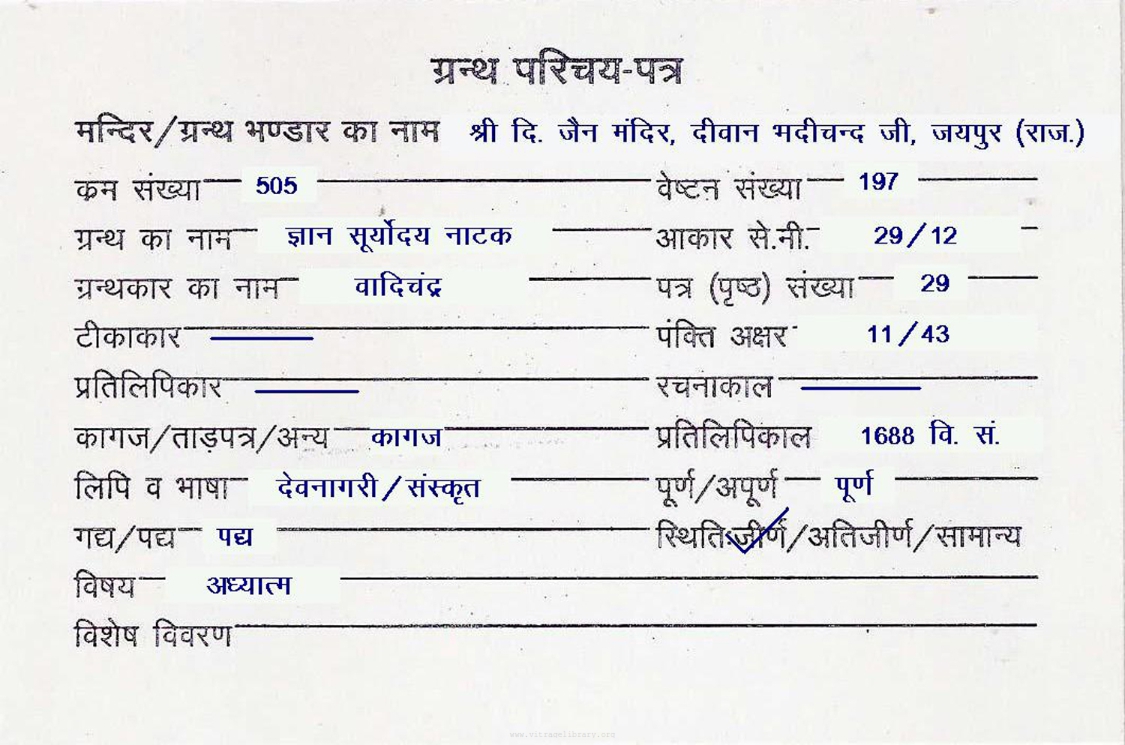 ग्रन्थ परिचय-पत्र
मन्दिर/ग्रन्थ भण्डार का नाम श्री दि. जैन मंदिर, दीवान भदीचन्द जी, जयपुर (राज.)
क्रम संख्या 505 वेष्टन संख्या 197
ग्रन्थ का नाम ज्ञान सूर्योदय नाटक आकार से.मी. 29/12
ग्रन्थकार का नाम वादिचंद्र पत्र (पृष्ठ) संख्या 29
टीकाकार पंक्ति अक्षर 11/43
प्रतिलिपिकार रचनाकाल
कागज/ताड़पत्र/अन्य कागज प्रतिलिपिकाल 1688 वि. सं.
लिपि व भाषा देवनागरी/संस्कृत पूर्ण/अपूर्ण पूर्ण
गद्य/पद्य पद्य स्थिति:जीर्ण/अतिजीर्ण/सामान्य
विषय अध्यात्म
विशेष विवरण